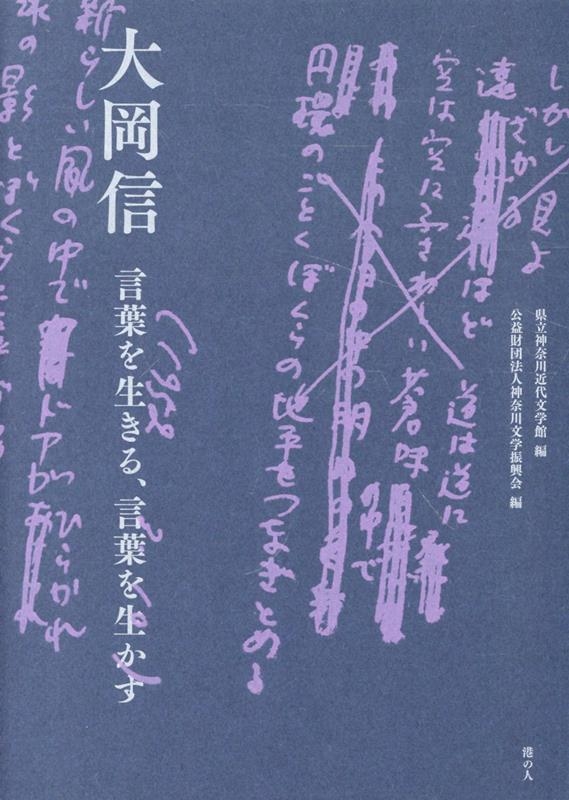 しかし視よ
遠ざかる
ほど
道は道に
空は空にふさわしい蒼
で
円環のごとくぼくらの地平をつなぎとめる
県立神奈川近代文学館 編
公益財団法人神奈川文学振興会 編
大岡信
言葉を生きる、言葉を生かす
新らしい風の中で
ドアがひらかれ
の影とぼくら
港の人